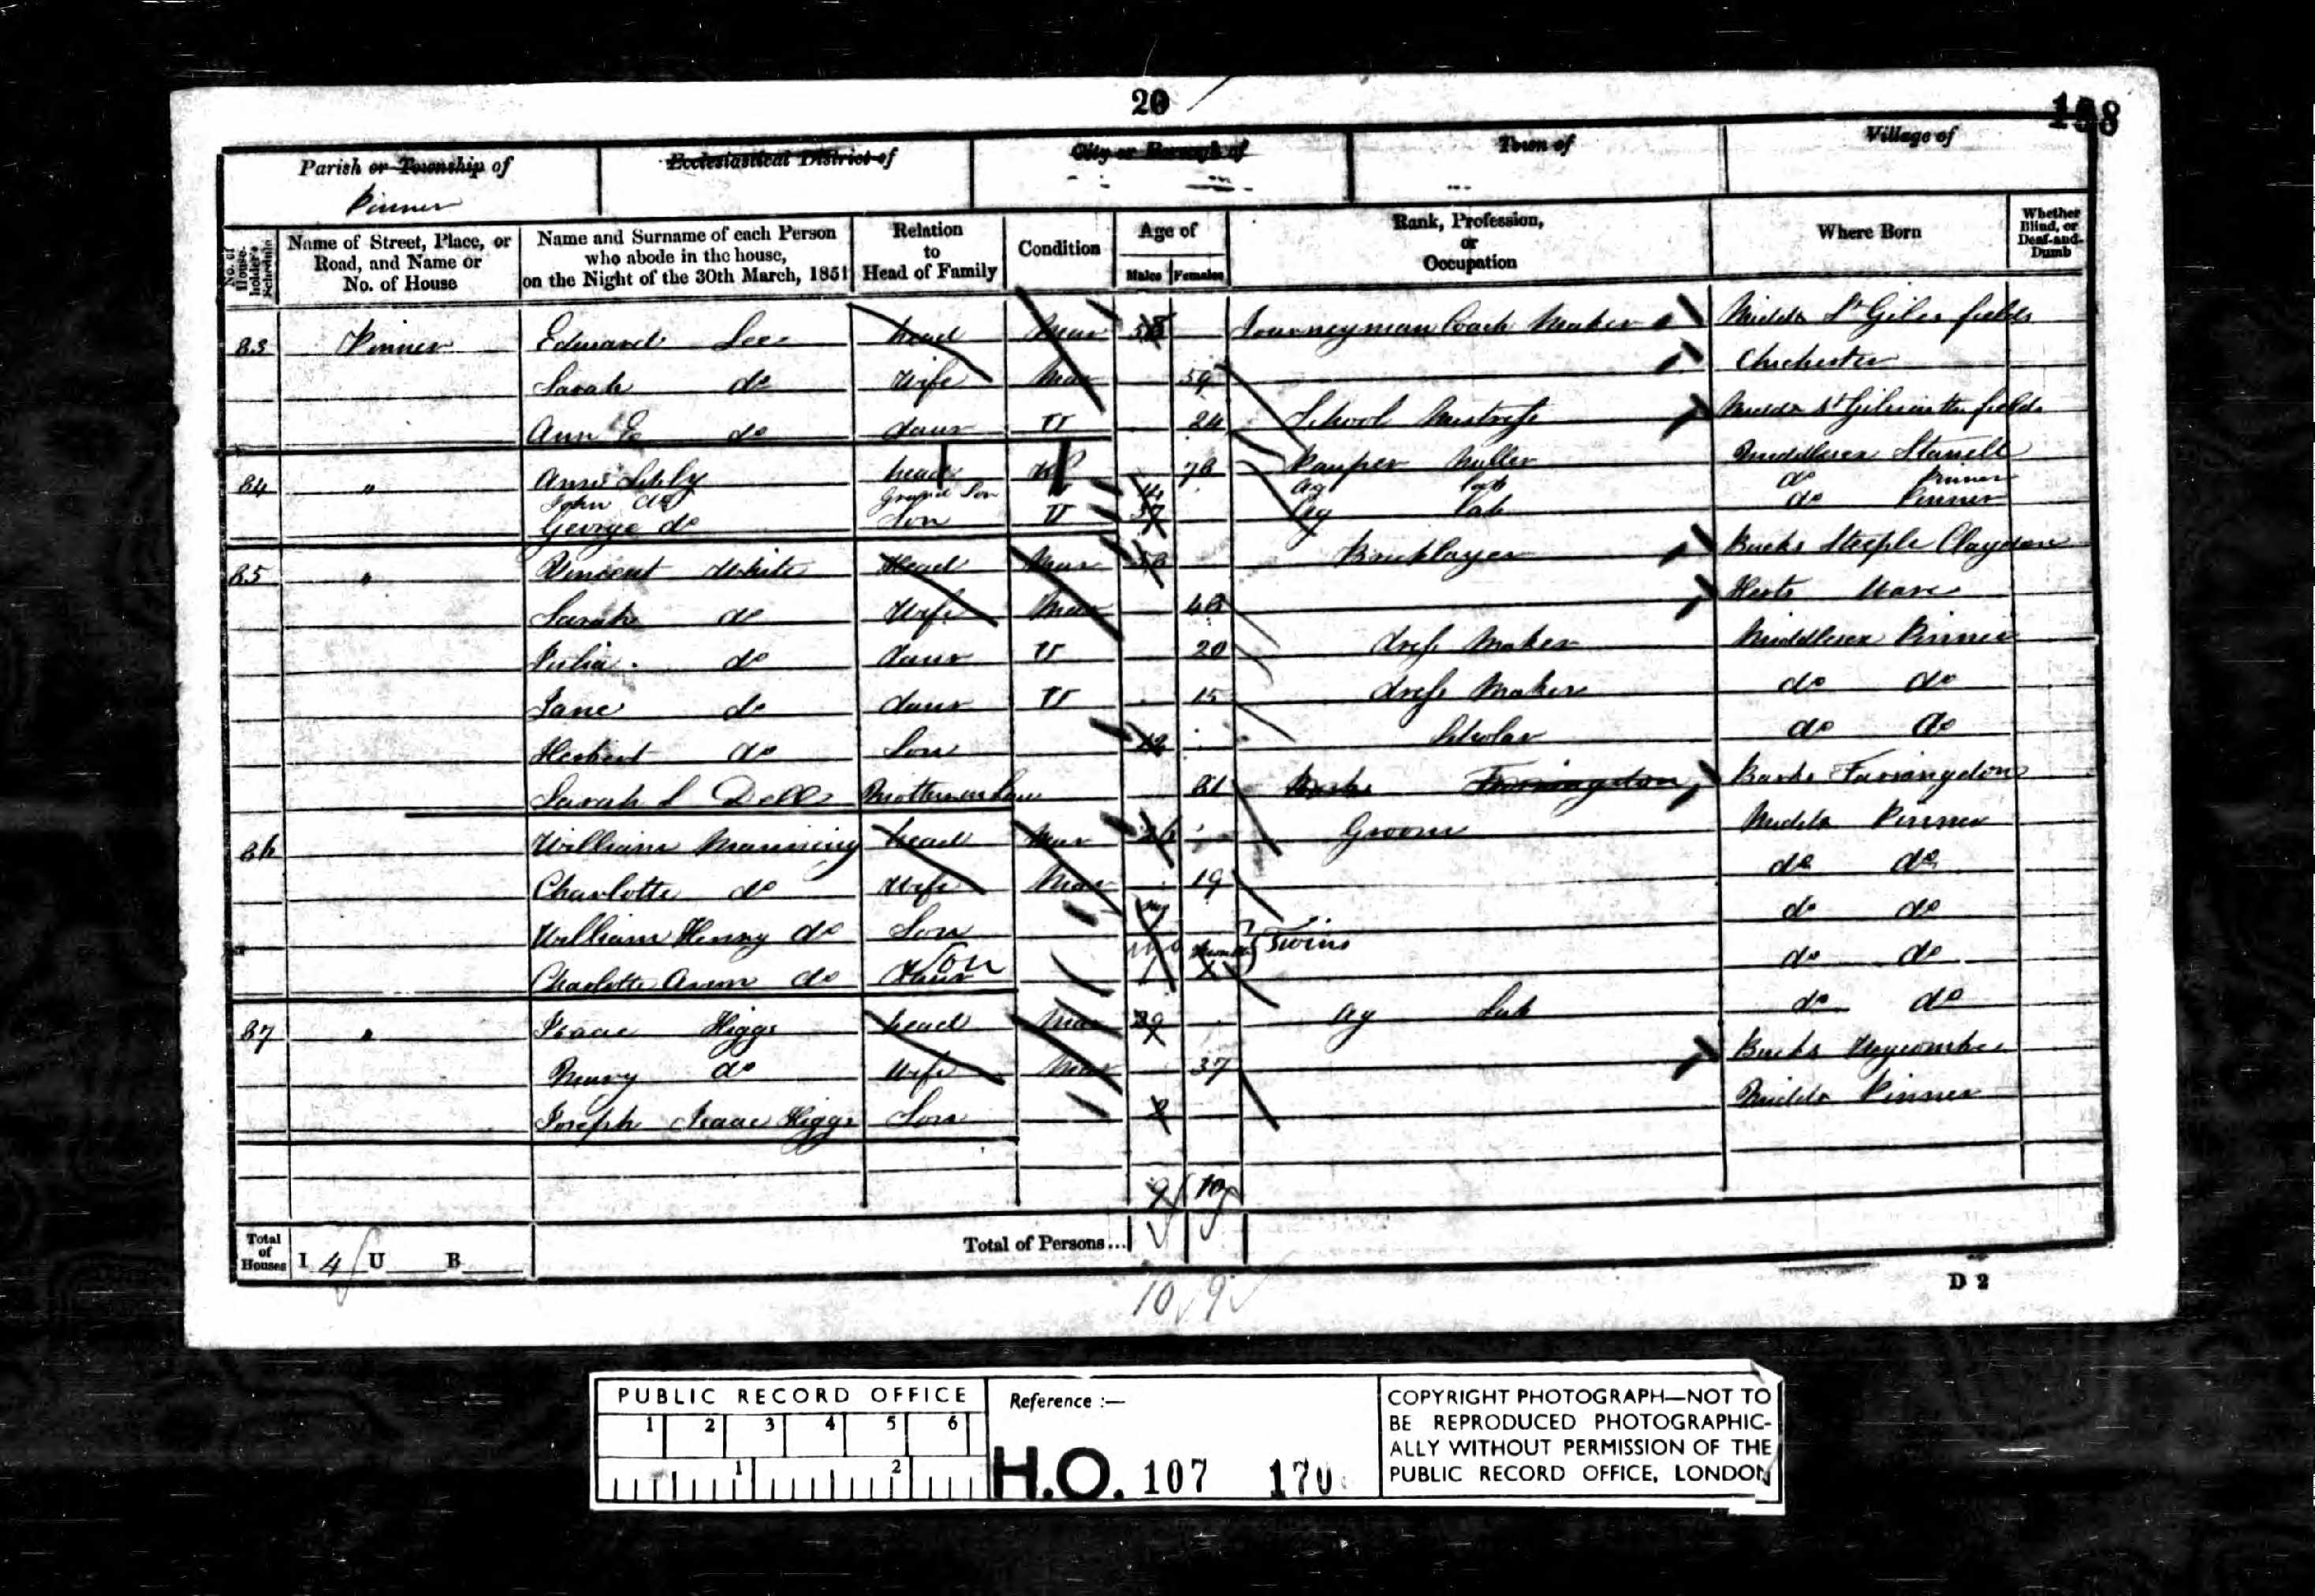 20
158
Parish or Township of
Pinner
Ecclesiastical District of
City or Borough of
Town of
Village of
No. of House-holder's Schedule
Name of Street, Place, or Road, and Name or No. of House
Name and Surname of each Person who abode in the house, on the Night of the 30th March, 1851
Relation to Head of Family
Condition
Age of
Males Females
Rank, Profession, or Occupation
Where Born
Whether Blind, or Deaf-and-Dumb
83 Pinner Edward Lee head Mar 58 Journeyman Coach Maker Middx St Giles fields
Sarah do Wife Mar 59 Chichester
Ann E do daur U 24 School Mistress Middx St Giles in the fields
84 " Ann head 78 Pauper Middlesex
John do Grand Son 14 ag lab do Pinner
George do Son U 37 ag lab do Pinner
85 " Vincent White Head Mar 58 Bricklayer Bucks Steeple Claydon
Sarah do Wife Mar 48 Herts Ware
Julia do daur U 20 dress Maker Middlesex Pinner
Jane do daur U 15 dress Maker do do
Herbert do Son 12 Scholar do do
Sarah S Dell Mother in Law 81 Berks Farringdon Berks Farringdon
86 William Manning head Mar 26 Groom Middx Pinner
Charlotte do Wife Mar 19 do do
William Henry do Son do do
Charlotte Ann do daur Son Twins do do
87 " Isaac Higgs head Mar 29 ag Lab do do
Mary do Wife Mar 37 Bucks Wycombe
Joseph Isaac Higgs Son 8 Middx Pinner
9 10
Total of Houses I 4 U B
Total of Persons...
10 9
D 2
PUBLIC RECORD OFFICE
1 2 3 4 5 6
1 2
Reference :—
H.O. 107 170
COPYRIGHT PHOTOGRAPH—NOT TO
BE REPRODUCED PHOTOGRAPHIC-
ALLY WITHOUT PERMISSION OF THE
PUBLIC RECORD OFFICE, LONDON